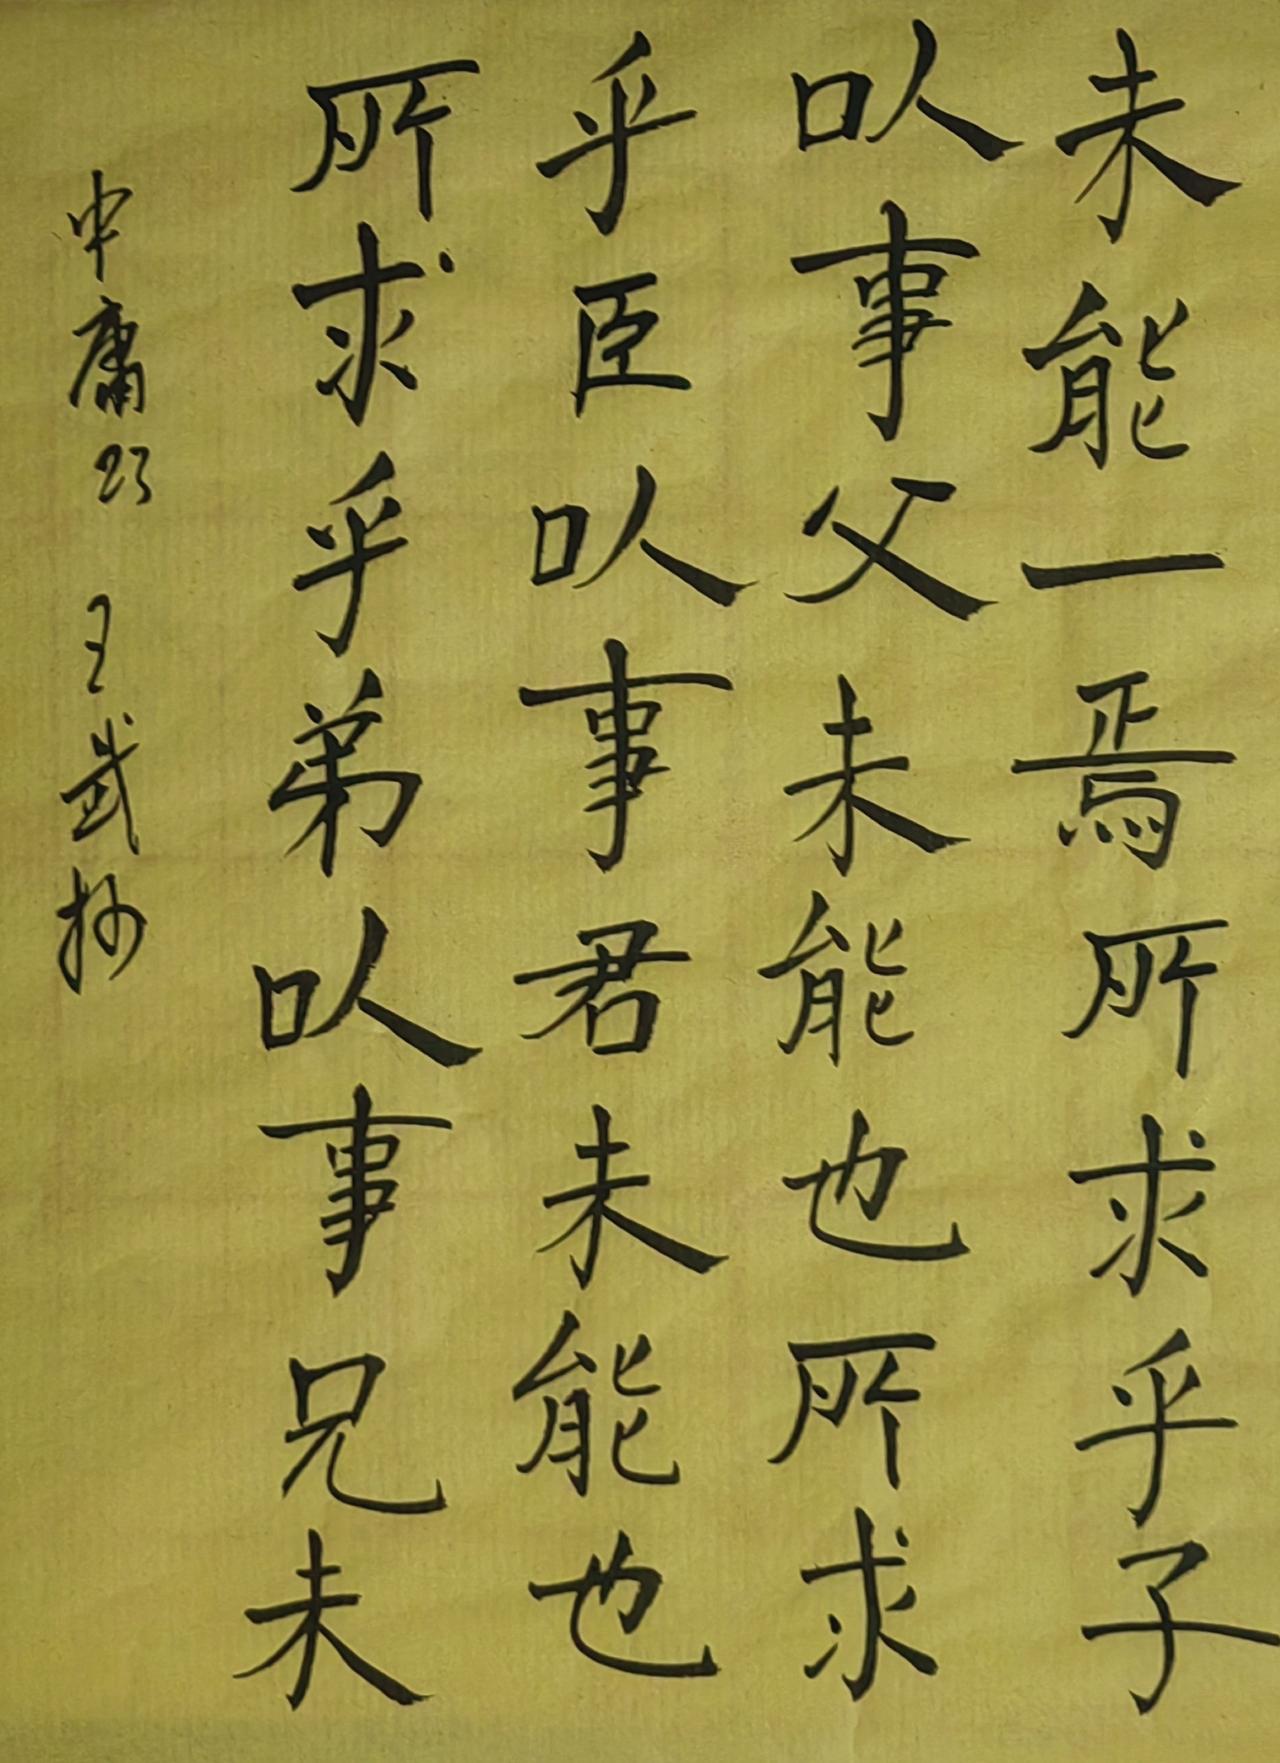 未能一焉所求乎子
以事父未能也所求
乎臣以事君未能也
所求乎弟以事兄未
中庸23 王武抄